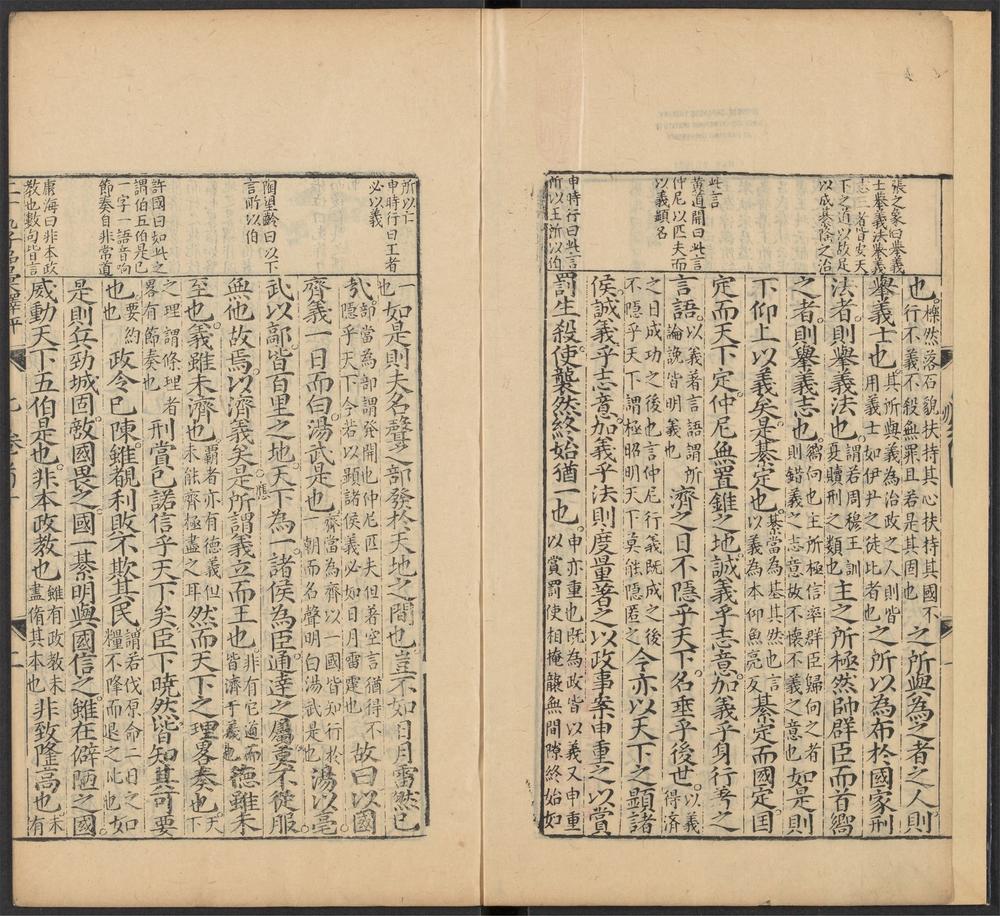 張之象曰舉義
士舉義法舉義
志三者皆安天
下之道以故足
以成綦之治
此言
黃道開曰此言
仲尼以匹夫而
以義顯名
申時行曰此言
所以王所以伯
也櫟然落石貌扶持其心扶持其國不行不義不殺無罪且若是其固也之所與為之者之人則
舉義士也其所與義為治政之人則皆用義士如伊尹之徒比者也之所以為布於國家刑
法者則舉義法也謂若周穆王訓夏贖刑之類也主之所極然帥群臣而首嚮
之者則舉義志也嚮向也主所極信率群臣歸向之者則錯義之志意故不懷不義之意也如是則
下仰上以義矣是綦定也綦當為基其然也言以義為本仰魚亮反綦定而國定囯
定而天下定仲尼無置錐之地誠義乎志意加義乎身行著之
言語以義著言語謂所論說皆明義也濟之日不隱乎天下名垂乎後世以義得濟
之日成功之後也言仲尼行義既成之後不隱乎天下謂極昭明天下莫能隱匿之今亦以天下之顯諸
侯誠義乎志意加義乎法則度量著之以政事案申重之以賞
罰生殺使襲然終始猶一也申亦重也既為政皆以義又申重以賞罰使相掩襲無間隙終始如
所以亡
申時行曰王者
必以義
陶望齡曰以下
言所以伯
許國曰如此之
謂伯五伯是已
一字一語音响
節奏自非常道
康海曰非本政
教也數句皆言
一也如是則夫名聲之部發於天地之間也豈不如日月雷然已
哉部當為剖謂發開也仲尼匹夫但著空言猶得不隱乎天下今若以顯諸侯義必如日月雷霆也故曰以國
齊義一日而白湯武是也齊當為濟以一國皆知行於一朝而名聲明白湯武是也湯以亳
武以鄗皆百里之地天下為一諸侯為臣通達之屬莫不從服
無他故焉以濟義矣是所謂義立而王也非有它道而皆濟于義也德雖未
至也義雖未濟也謂者亦有德義但未能齊極盡之耳然而天下之理畧奏也天下
之理謂條理者畧有節奏也刑賞已諾信乎天下矣臣下曉然皆知其可要
也要約也政令已陳雖覩利敗不欺其民謂若伐原命三日之糧不降而退之比也如
是則兵勁城固敵國畏之國一綦明與國信之雖在僻陋之國
威動天下五伯是也非本政教也雖有政教未盡脩其本也非致隆高也未有
卷
二